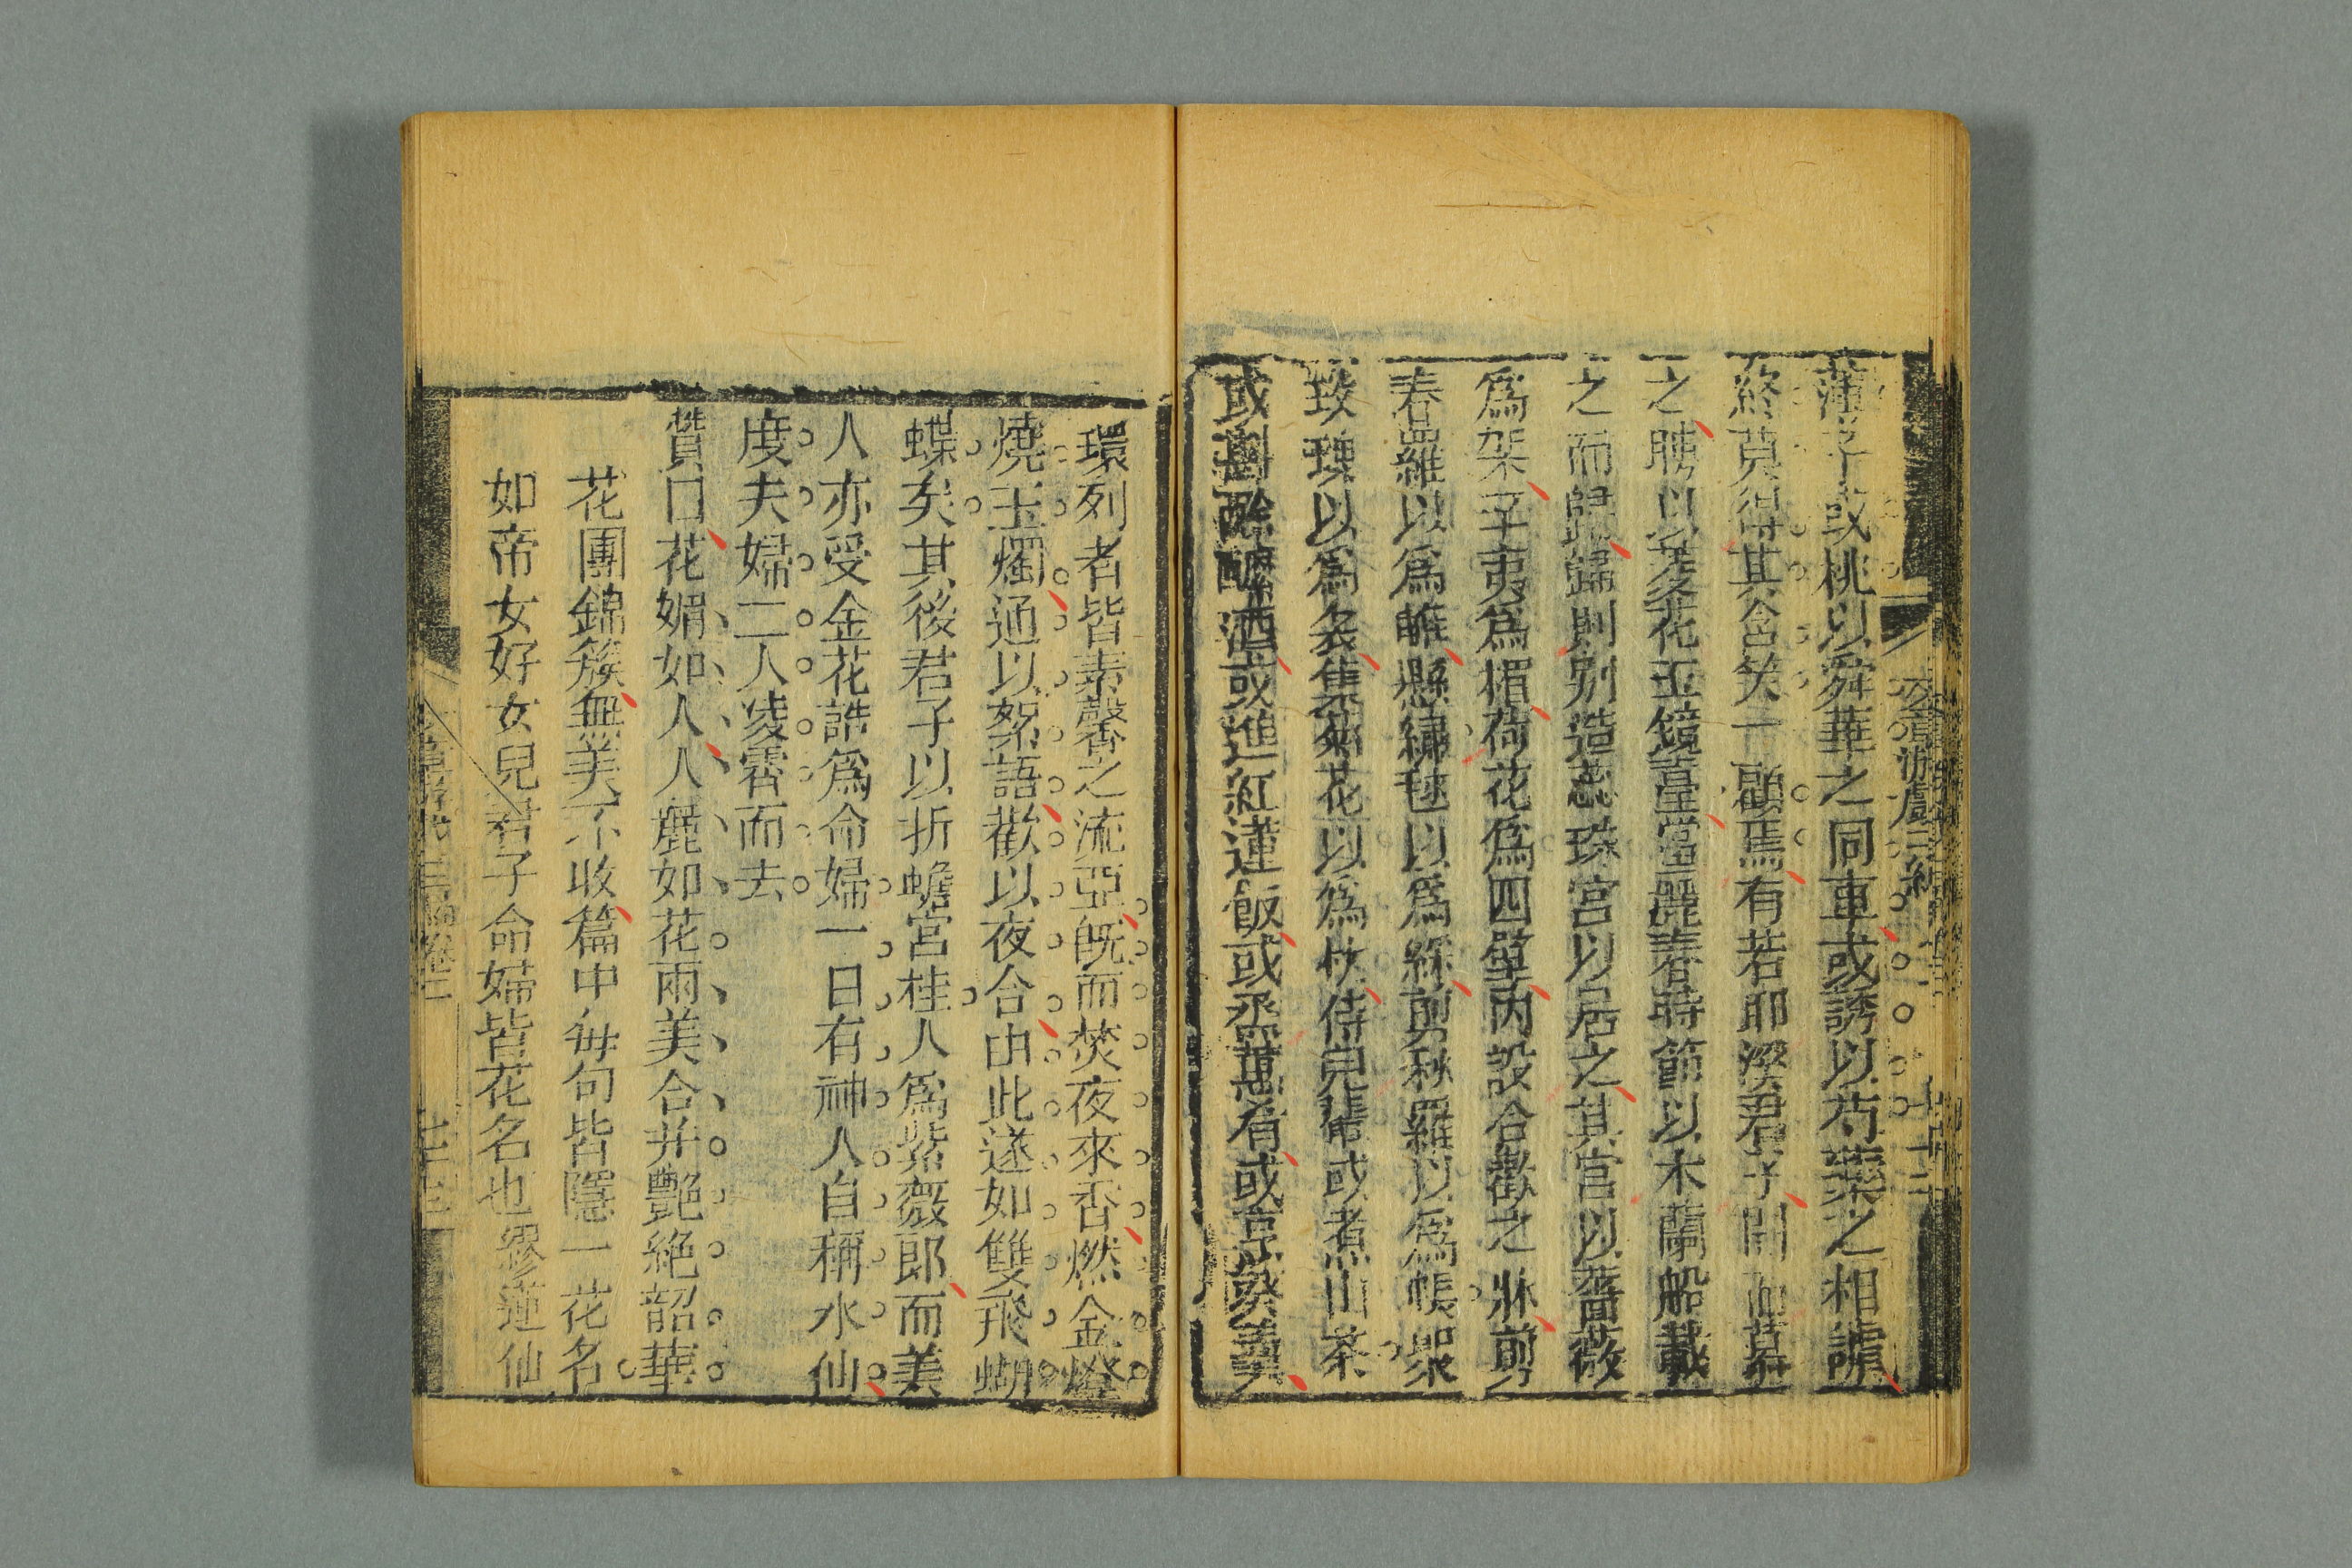 薄子或桃以舜華之同車或誘以芍藥之相謔
終莫得其含笑一顧焉有若耶溪君子聞而慕
之聘以愛花玉鏡臺當麗春時節以木蘭船載
之而歸歸則別造蕊珠宮以居之其宮以薔薇
爲架辛夷爲楣荷花爲四壁內設合歡之牀剪
春羅以爲帷懸繡毬以爲綵剪秋羅以爲帳聚
玫瑰以爲衾集菊花以爲枕侍兒輩或煮山茶
或斟酴醿酒或進紅蓮飯或烝萱肴或烹葵羹
環列者皆素馨之流亞旣而焚夜來香燃金燈
燒玉燭通以絮語歡以夜合由此遂如雙飛蝴
蝶矣其後君子以折蟾宮桂人爲紫薇郎而美
人亦受金花誥爲命婦一日有神人自稱水仙
度夫婦二人凌霄而去
贊曰花媚如人人麗如花兩美合并艷絶韶華
花團錦簇無美不收篇中每句皆隱一花名
如帝女好女兒君子命婦皆花名也繆蓮仙